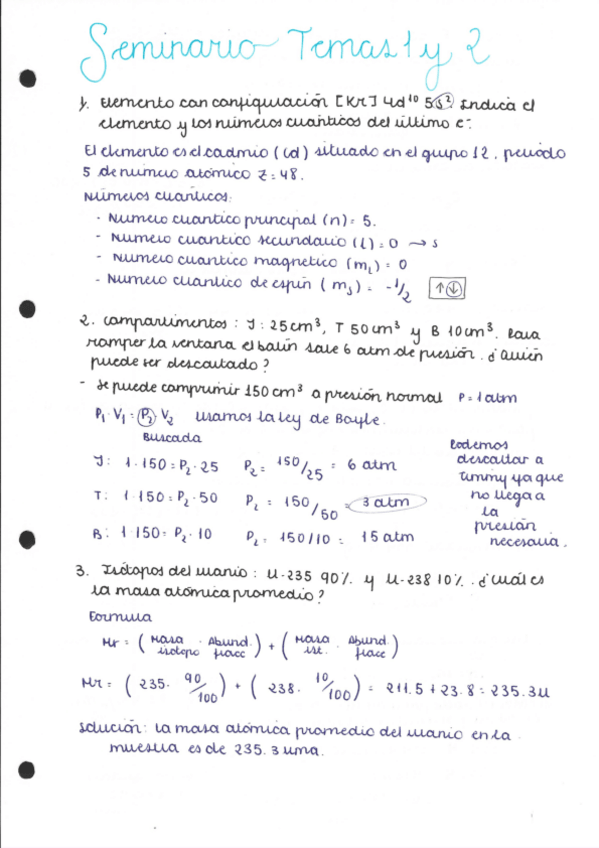 Seminario Temas 1 y 2
1. Elemento con configuración [Kr] 4d¹⁰ 5s². Indica el
elemento y los números cuánticos del último e⁻.
El elemento es el cadmio (Cd) situado en el grupo 12, periodo
5 de número atómico Z=48.
Números cuánticos:
- Número cuántico principal (n) = 5.
- Número cuantico secundario (l) = 0 → s
- Número cuantico magnético (mₗ) = 0
- Número cuantico de espín (mₛ) = -1/2 ↑↓
2. Compartimentos: J: 25cm³, T 50cm³ y B 10cm³. Para
romper la ventana el balín sale 6 atm de presión. ¿Quién
puede ser descartado?
- Se puede comprimir 150 cm³ a presión normal P = 1 atm
P₁ · V₁ = P₂ V₂ Usamos la ley de Boyle.
Buscada
J: 1·150 = P₂ · 25 P₂ = 150/25 = 6 atm
T: 1·150 = P₂ · 50 P₂ = 150/50 = 3 atm
B: 1·150 = P₂ · 10 P₂ = 150/10 = 15 atm
Podemos
descartar a
Timmy ya que
no llega a
la
presión
necesaria.
3. Isótopos del uranio: U-235 90% y U-238 10%. ¿Cuál es
la masa atómica promedio?
Formula
Mr = (Masa isótopo · Abund. fracc) + (Masa ist. · Abund. fracc)
Mr = (235 · 90/100) + (238 · 10/100) = 211.5 + 23.8 = 235.3u
Solución: La masa atómica promedio del uranio en la
muestra es de 235.3 uma.